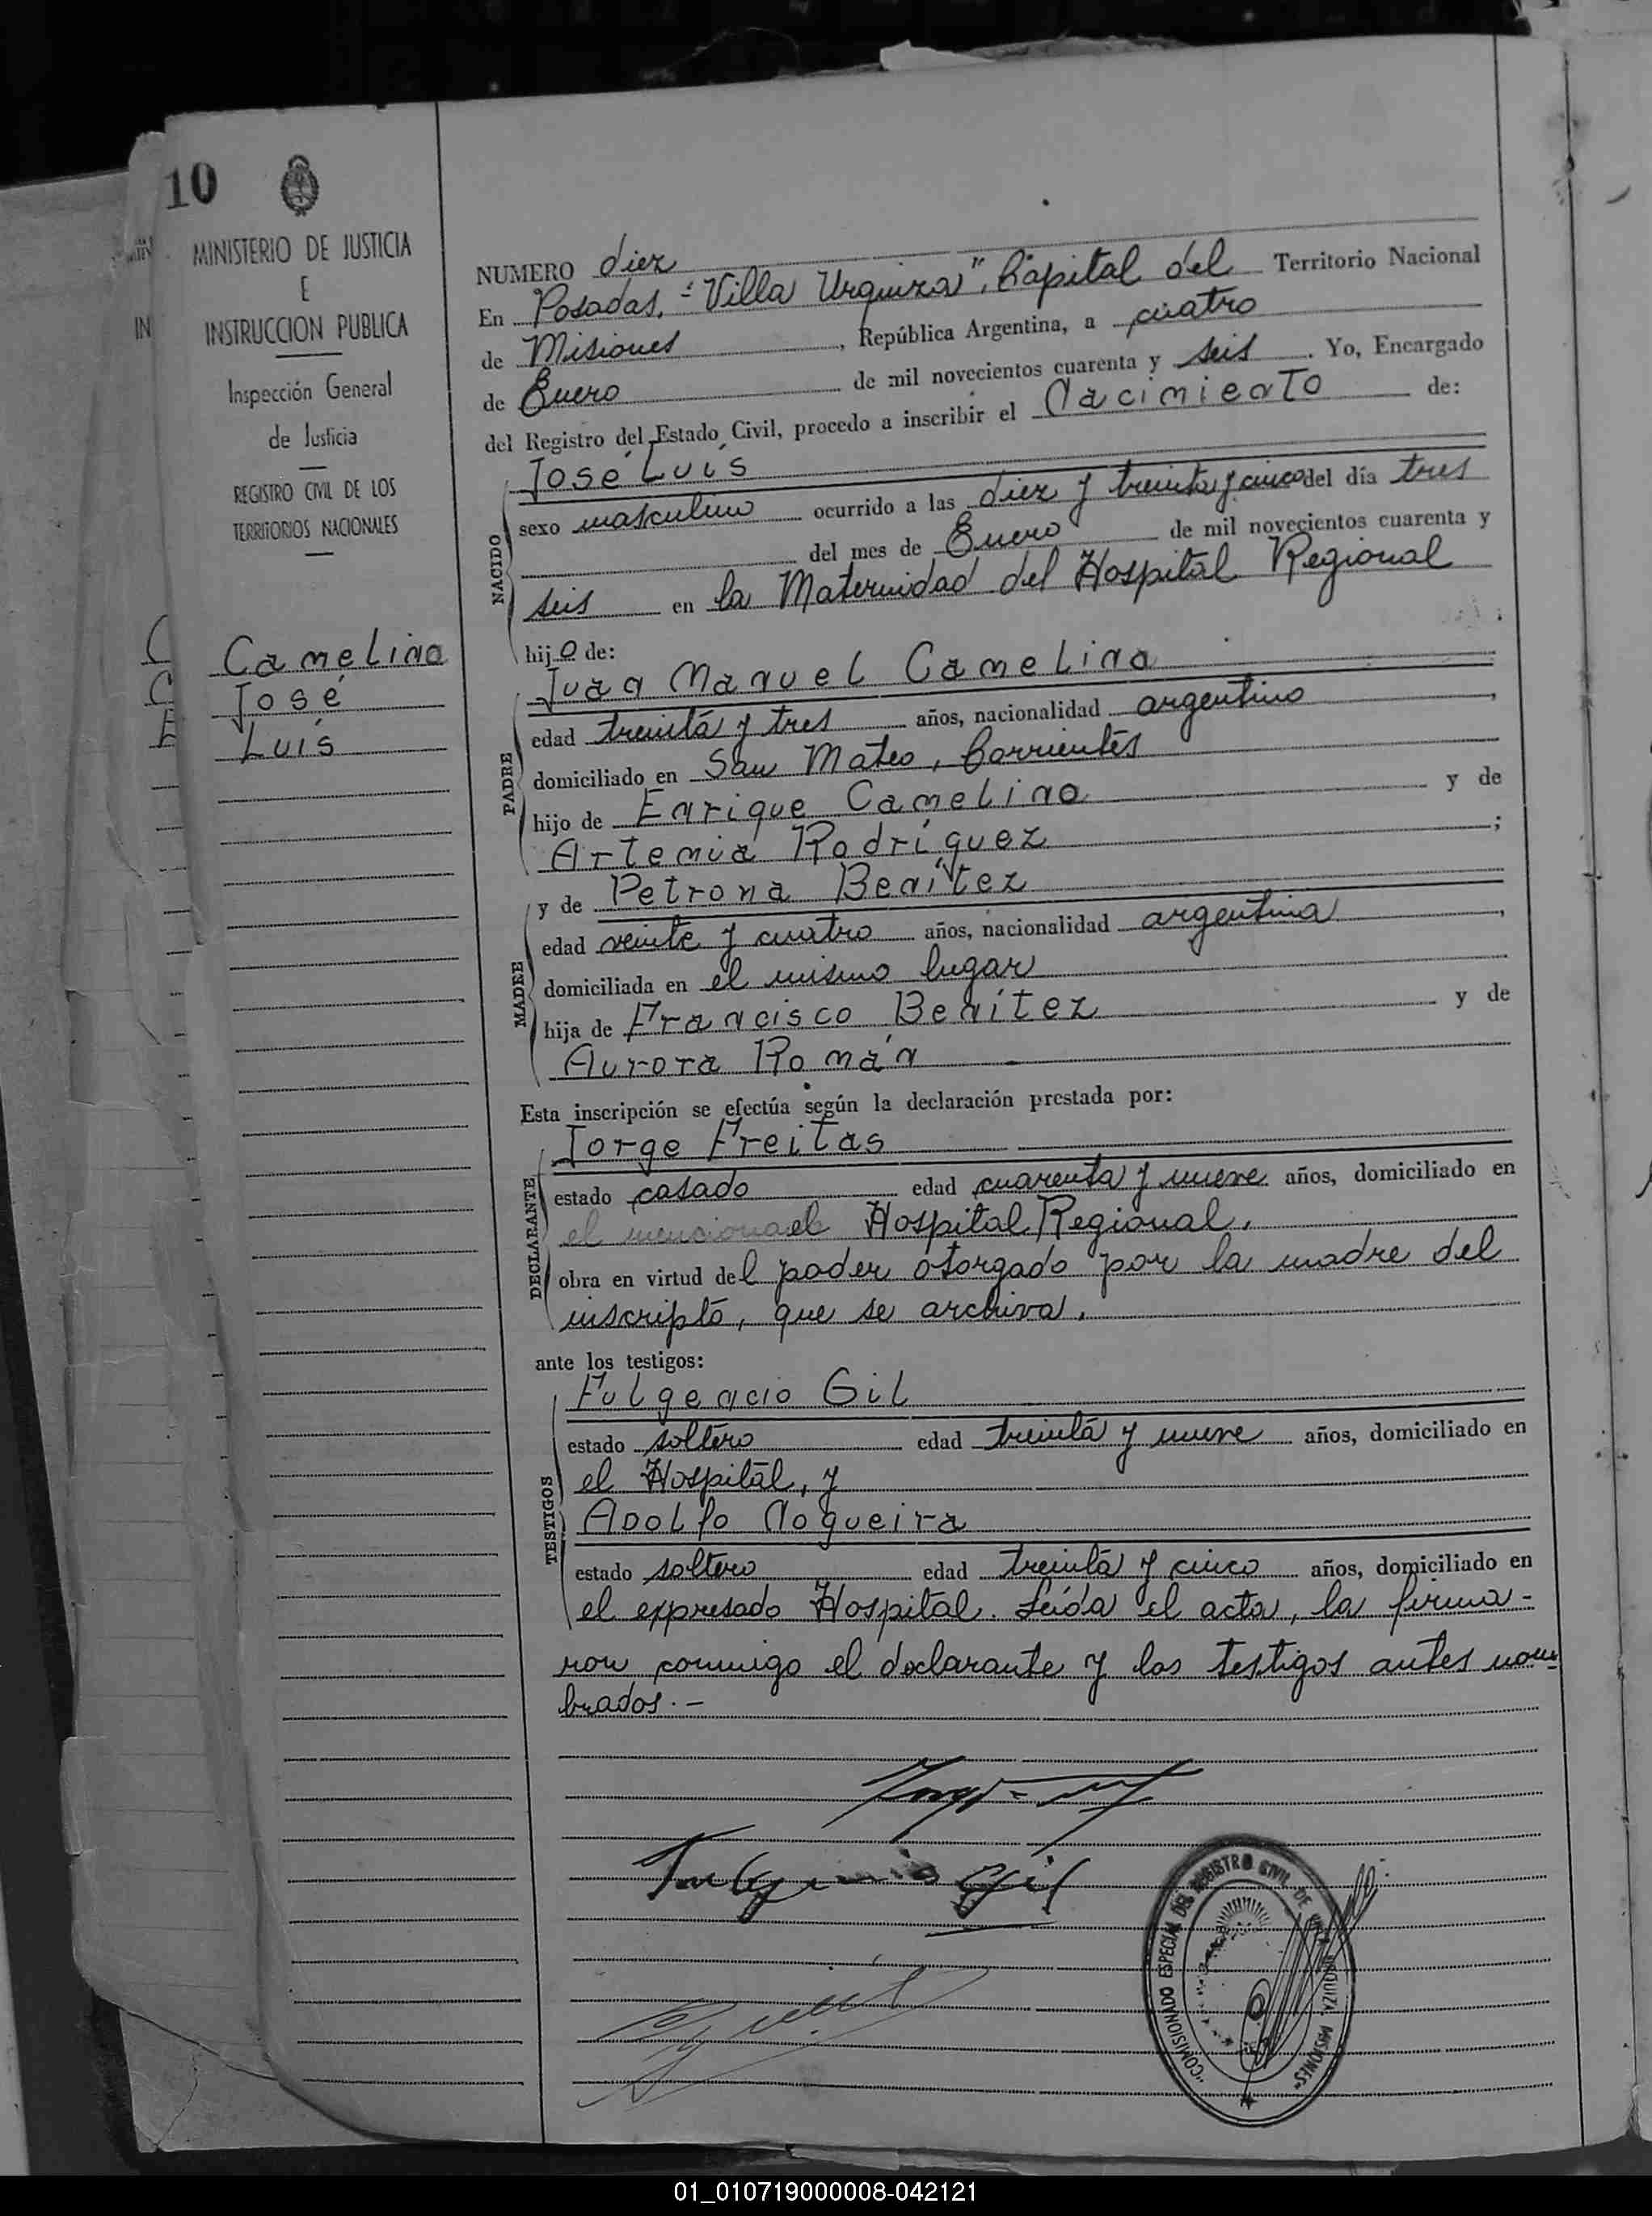 10
MINISTERIO DE JUSTICIA
E
INSTRUCCION PUBLICA
Inspección General
de Justicia
REGISTRO CIVIL DE LOS
TERRITORIOS NACIONALES
Camelino
José
Luis
NUMERO diez
En Posadas, "Villa Urquiza", Capital del Territorio Nacional
de Misiones, República Argentina, a cuatro
de Enero de mil novecientos cuarenta y seis. Yo, Encargado
del Registro del Estado Civil, procedo a inscribir el Nacimiento de:
NACIDO
José Luis
sexo masculino ocurrido a las diez y treinta y cinco del día tres
del mes de Enero de mil novecientos cuarenta y
seis en la Maternidad del Hospital Regional
hijo de:
PADRE
Juan Manuel Camelino
edad treinta y tres años, nacionalidad argentino,
domiciliado en San Mateo, Corrientes
hijo de Enrique Camelino y de
Artemia Rodríguez;
MADRE
y de Petrona Benítez
edad veinte y cuatro años, nacionalidad argentina,
domiciliada en el mismo lugar
hija de Francisco Benítez y de
Aurora Román
Esta inscripción se efectúa según la declaración prestada por:
DECLARANTE
Jorge Freitas
estado casado edad cuarenta y nueve años, domiciliado en
el Hospital Regional,
obra en virtud del poder otorgado por la madre del
inscripto, que se archiva.
ante los testigos:
TESTIGOS
Fulgencio Gil
estado soltero edad treinta y nueve años, domiciliado en
el Hospital, y
Adolfo Nogueira
estado soltero edad treinta y cinco años, domiciliado en
el expresado Hospital. Leída el acta, la firma-
ron conmigo el declarante y los testigos antes nom-
brados.-
Fulgencio Gil
"COMISIONADO ESPECIAL DEL REGISTRO CIVIL DE VILLA URQUIZA, MISIONES"
01_010719000008-042121